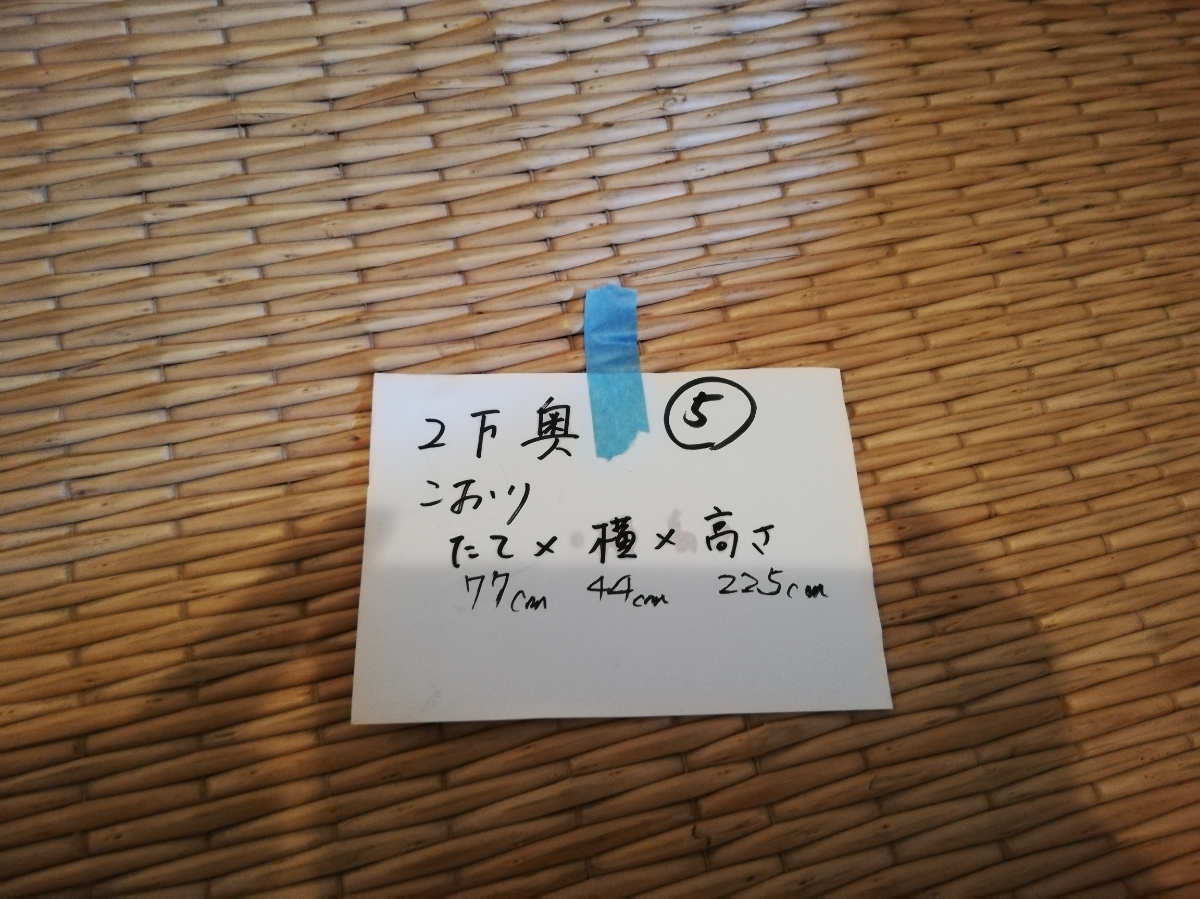 2下奥 ⑤
こおり
たて×横×高さ
77cm 44cm 225cm